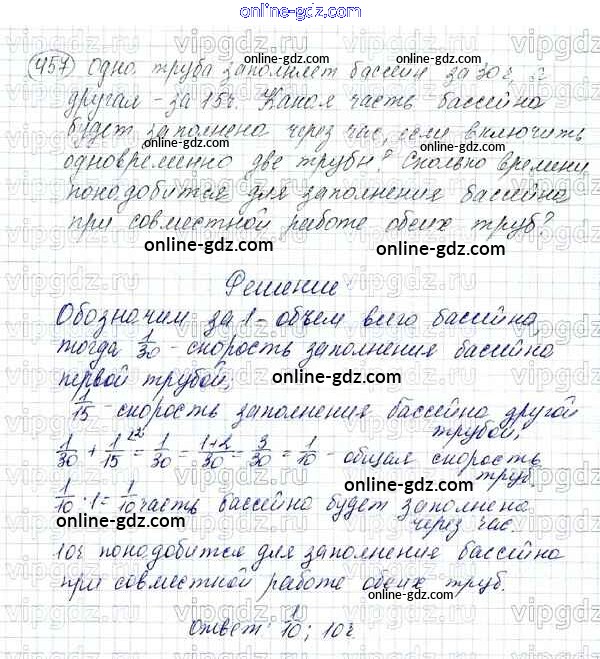 online-gdz.com
457) Одна труба заполняет бассейн за 30 г, а
другая - за 15г. Какая часть бассейна
будет заполнена через час, если включить
одновременно две трубы? Сколько времени
понадобится для заполнения бассейна
при совместной работе обеих труб?
online-gdz.com online-gdz.com
Решение
Обозначим за 1 - объем всего бассейна,
тогда 1/30 - скорость заполнения бассейна
первой трубой;
online-gdz.com
1/15 - скорость заполнения бассейна другой
трубой;
1/30 + 1/15 = 1/30 = (1+2)/30 = 3/30 = 1/10 - общая скорость
труб.
1/10 · 1 = 1/10 часть бассейна будет заполнена
через час.
online-gdz.com
10г понадобится для заполнения бассейна
при совместной работе обеих труб.
Ответ: 1/10; 10г.
online-gdz.com online-gdz.com